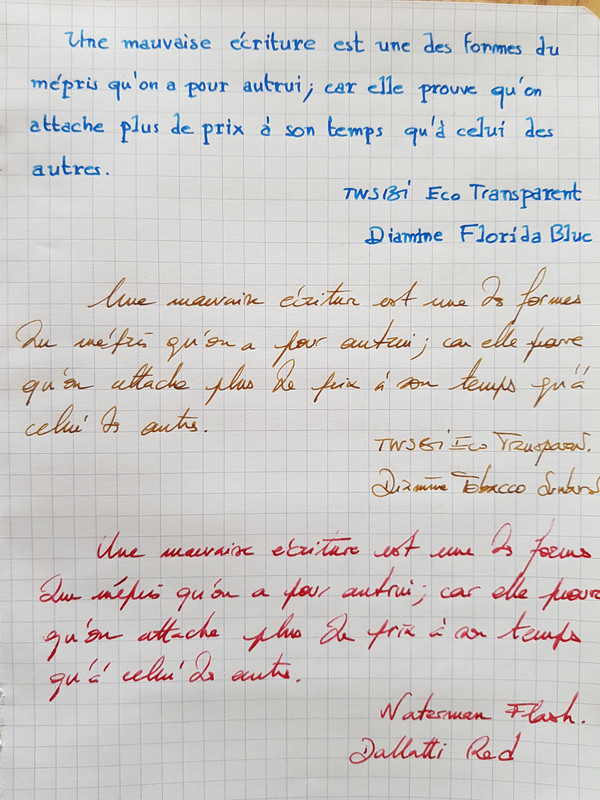 Une mauvaise écriture est une des formes du
mépris qu'on a pour autrui; car elle prouve qu'on
attache plus de prix à son temps qu'à celui des
autres.
TWSBi Eco Transparent
Diamine Florida Blue
Une mauvaise écriture est une des formes
du mépris qu'on a pour autrui; car elle prouve
qu'on attache plus de prix à son temps qu'à
celui des autres.
TWSBi Eco Transparent.
Diamine Tobacco Sunburst
Une mauvaise écriture est une des formes
du mépris qu'on a pour autrui; car elle prouve
qu'on attache plus de prix à son temps
qu'à celui des autres.
Waterman Flash.
Dallatti Red